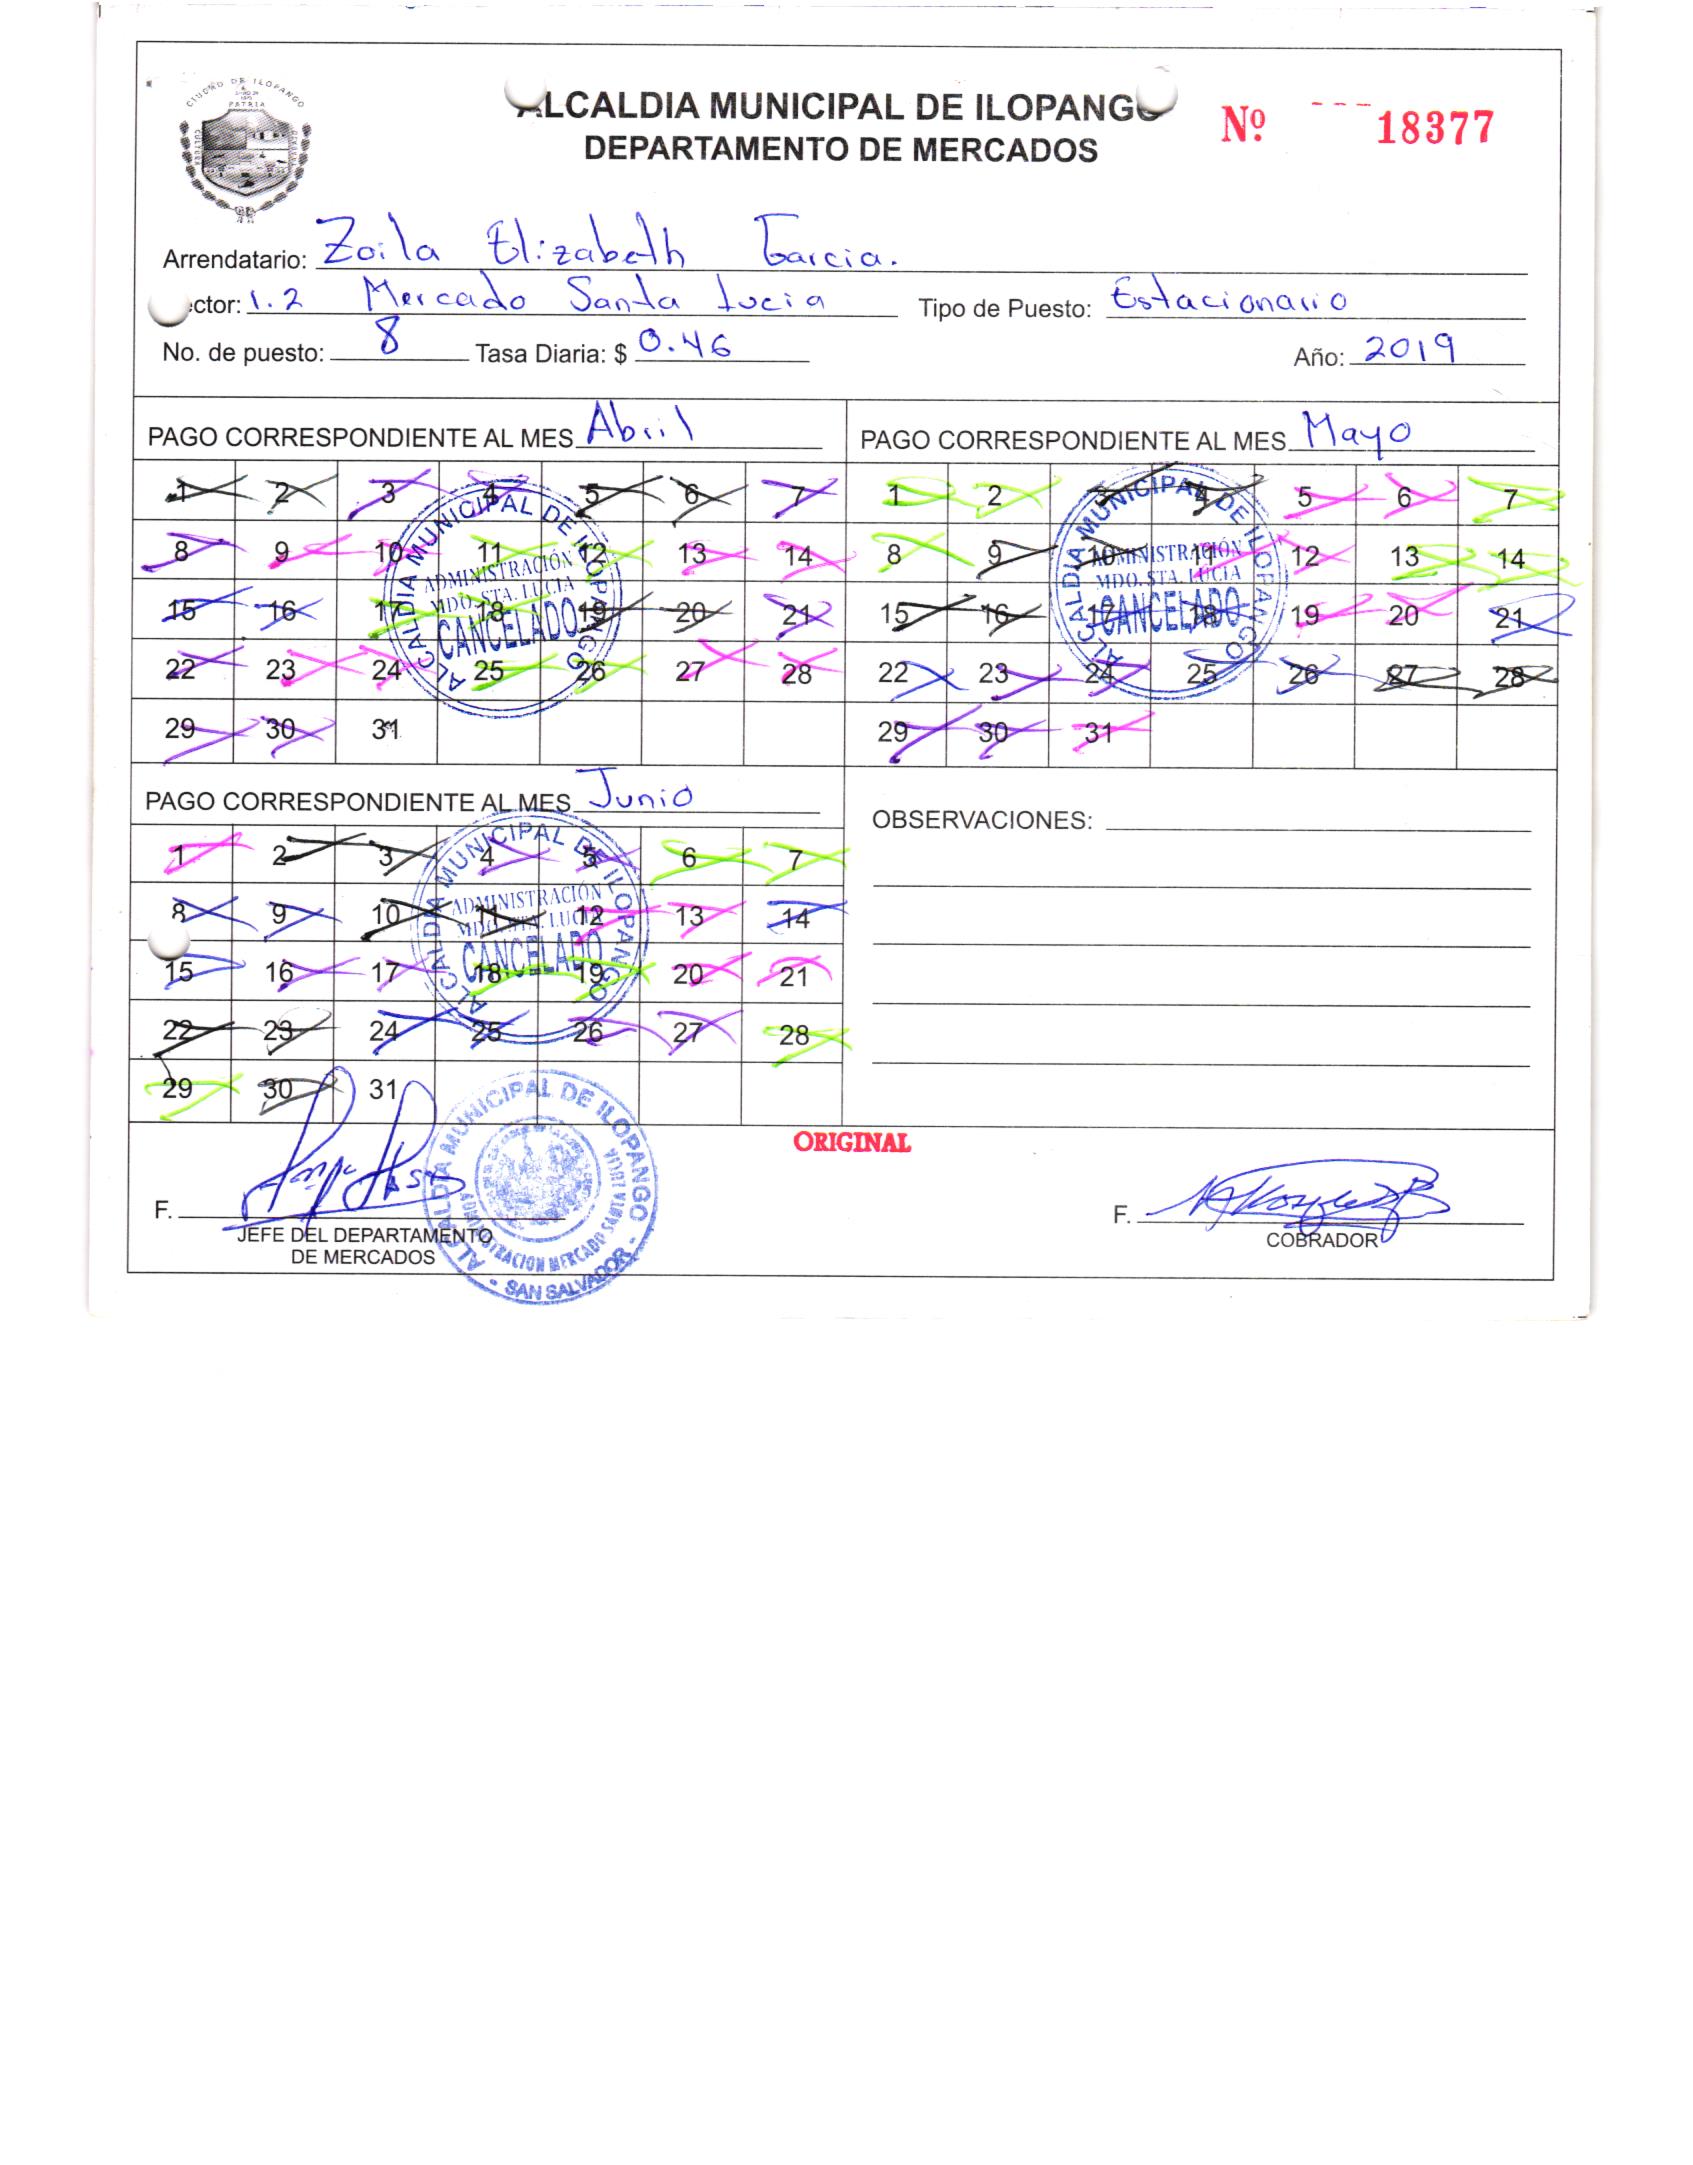 CIUDAD DE ILOPANGO
PATRIA
CULTURA
ALCALDIA MUNICIPAL DE ILOPANGO
DEPARTAMENTO DE MERCADOS
Nº 18377
Arrendatario: Zoila Elizabeth Garcia.
ector: 1.2 Mercado Santa Lucia Tipo de Puesto: Estacionario
No. de puesto: 8 Tasa Diaria: $ 0.46 Año: 2019
PAGO CORRESPONDIENTE AL MES Abril
1 2 3 4 5 6 7
8 9 10 11 12 13 14
15 16 17 18 19 20 21
22 23 24 25 26 27 28
29 30 31
ALCALDIA MUNICIPAL DE ILOPANGO
ADMINISTRACIÓN
MDO. STA. LUCIA
CANCELADO
PAGO CORRESPONDIENTE AL MES Mayo
1 2 3 4 5 6 7
8 9 10 11 12 13 14
15 16 17 18 19 20 21
22 23 24 25 26 27 28
29 30 31
ALCALDIA MUNICIPAL DE ILOPANGO
ADMINISTRACIÓN
MDO. STA. LUCIA
CANCELADO
PAGO CORRESPONDIENTE AL MES Junio
1 2 3 4 5 6 7
8 9 10 11 12 13 14
15 16 17 18 19 20 21
22 23 24 25 26 27 28
29 30 31
ALCALDIA MUNICIPAL DE ILOPANGO
ADMINISTRACIÓN
MDO. STA. LUCIA
CANCELADO
OBSERVACIONES:
ORIGINAL
F.
JEFE DEL DEPARTAMENTO
DE MERCADOS
ALCALDIA MUNICIPAL DE ILOPANGO
ADMINISTRACION MERCADO SANTA LUCIA
- SAN SALVADOR -
F.
COBRADOR